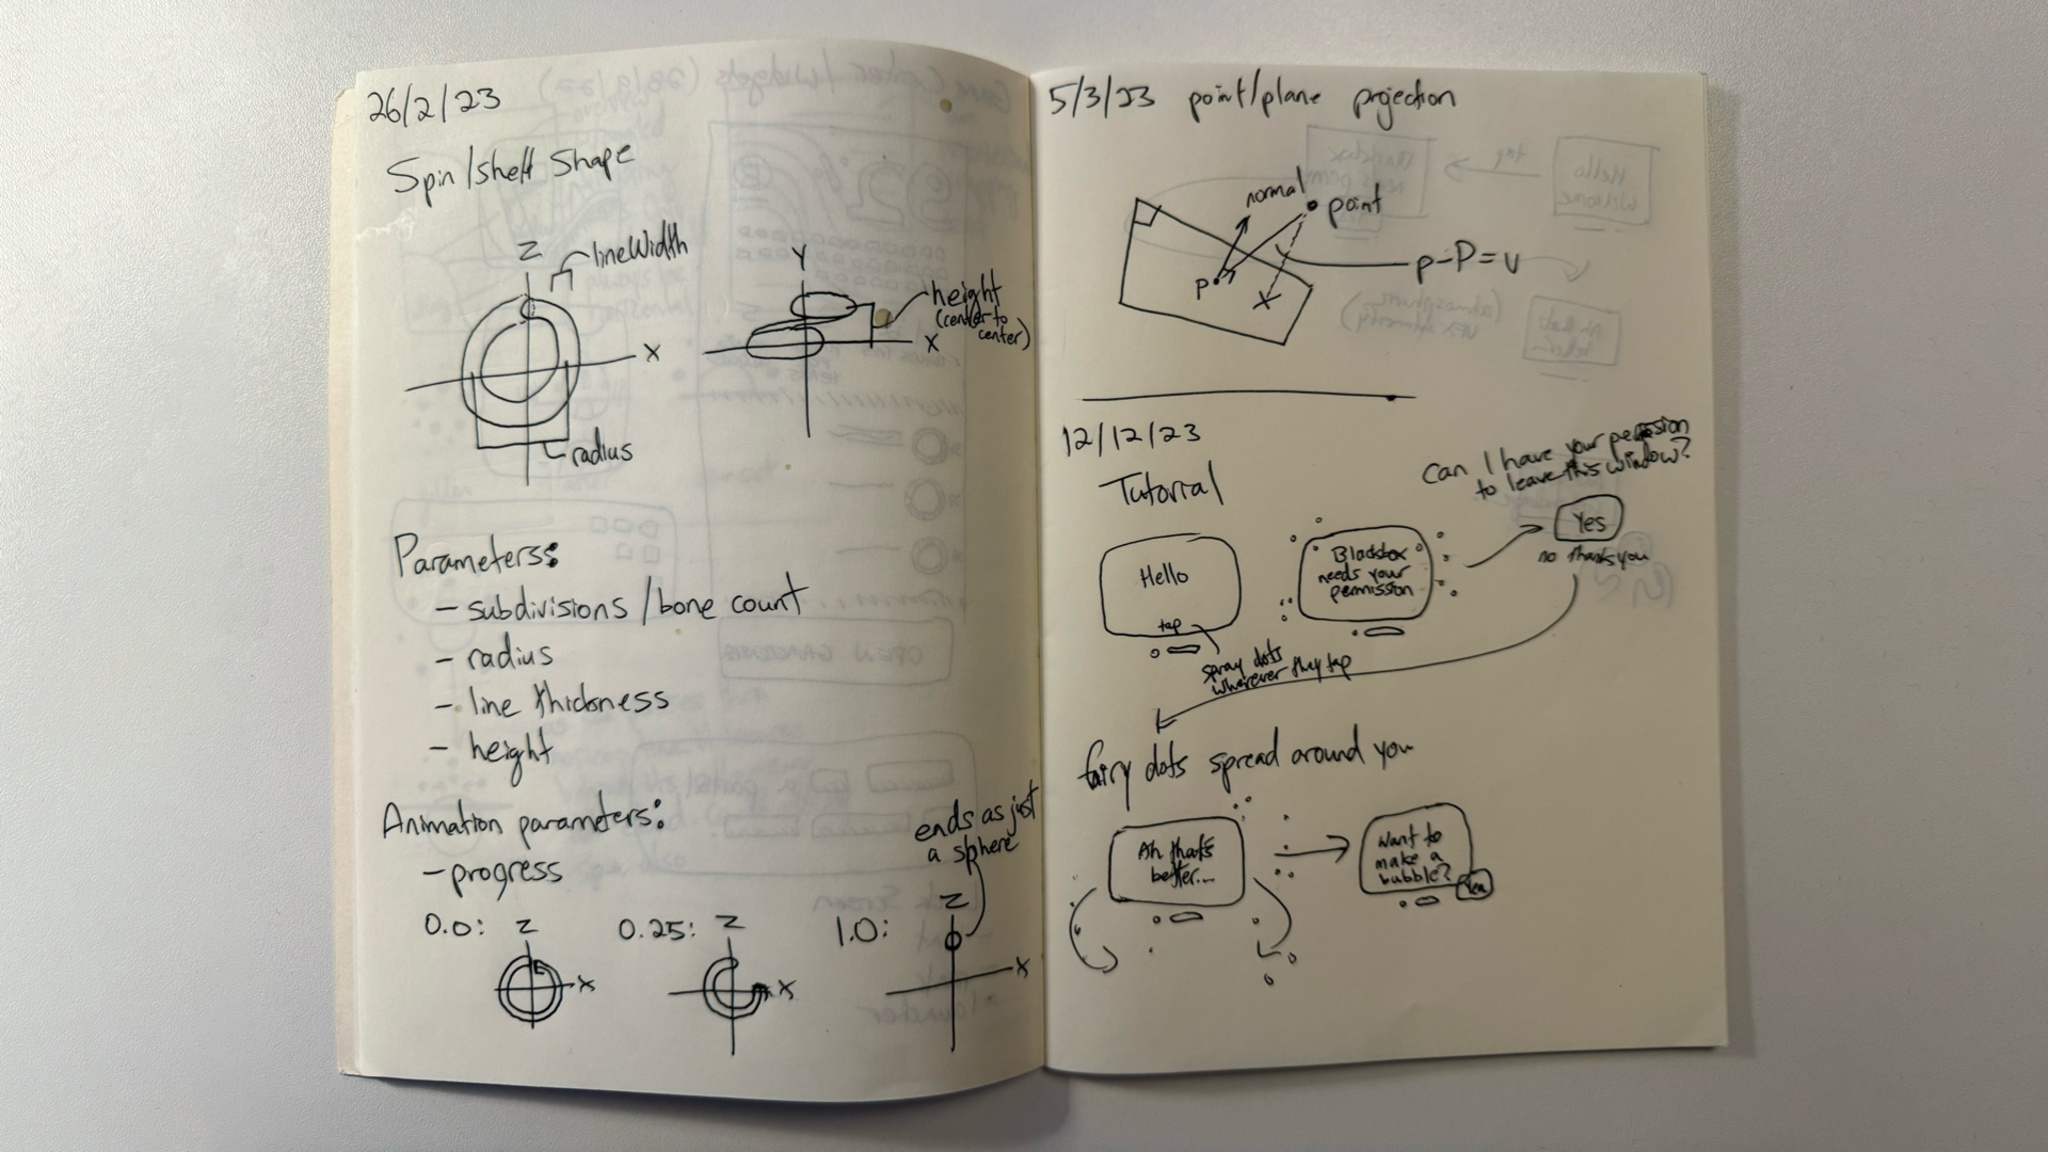 26/2/23
Spin/shell shape
Z
lineWidth
X
radius
Y
height
(center to
center)
X
Parameterss:
- subdivisions / bone count
- radius
- line thickness
- height
Animation parameters:
- progress
ends as just
a sphere
0.0:
Z
X
0.25:
Z
X
1.0:
Z
X
5/3/23 point/plane projection
normal
point
P
p-P=v
X
12/12/23
Tutorial
Can I have your permission
to leave this window?
Yes
no thank you
Hello
tap
Blackbox
needs your
permission
spray dots
wherever they tap
fairy dots spread around you
Ah thats
better...
Want to
make a
bubble?
Yea